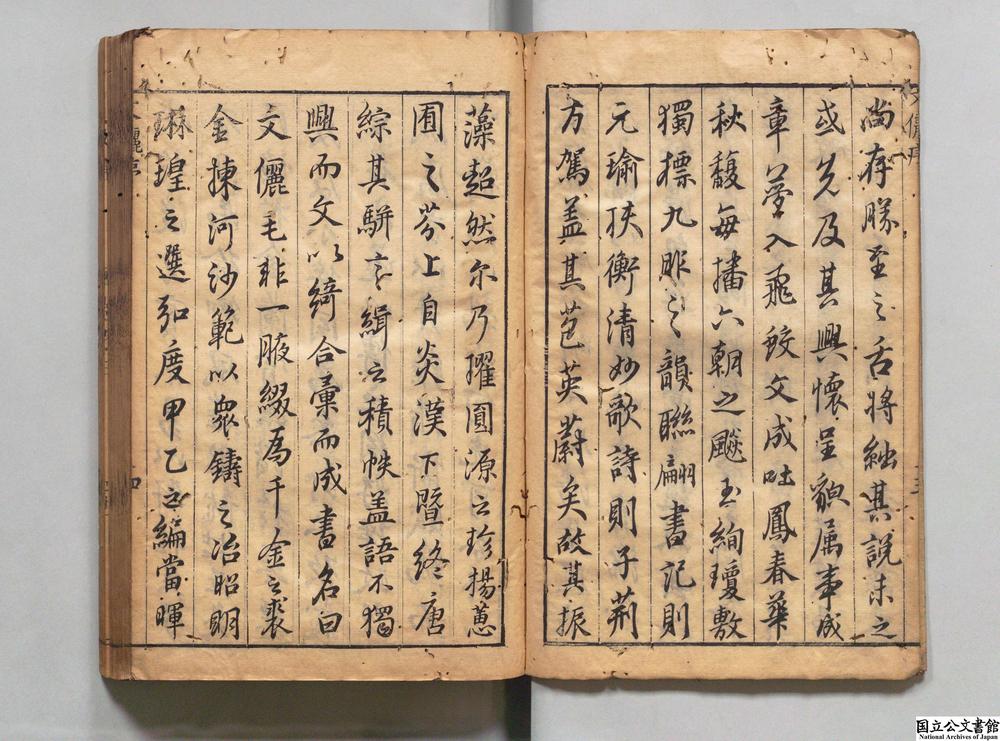 尚存勝至之舌將絀其説未之
或先及其興懷呈貌属事成
章夢入飛蛟文成吐鳳春華
秋馥每播六朝之飈玉絢瓊敷
獨摽九畹之韻聯翩書記則
元瑜抶衡清妙歌詩則子荊
方駕盖其苞英蔚矣故其振
藻超然尔乃擢圓源之珍揚蕙
囿之芬上自炎漢下暨終唐
綜其駢言緝之積帙盖語不獨
興而文以綺合彙而成書名曰
文儷毛非一腋綴為千金之裘
金揀河沙範以衆鑄之冶昭明
琳瑝之選弘度甲乙之編當暉
国立公文書館
National Archives of Japan